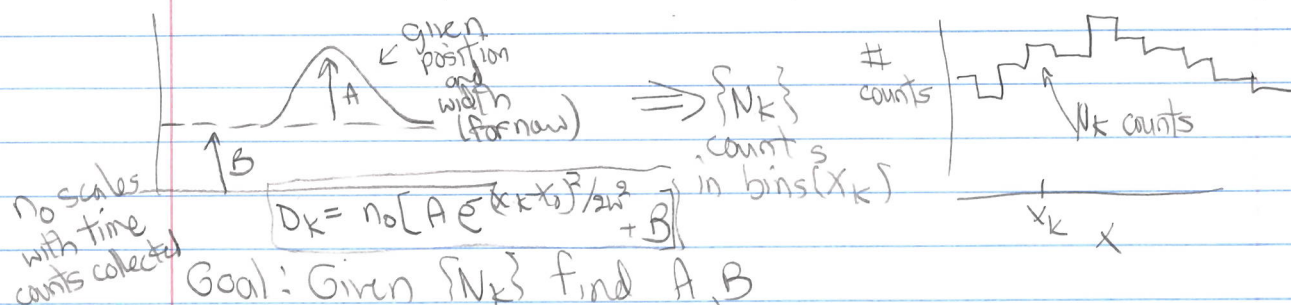 given
position
and
width
(for now)
A
B
⇒ {N_k}
counts
in bins (x_k)
#
counts
N_k counts
x_k
x
no scales
with time
counts collected
D_k = n_0[A e^{-(x_k-x_0)^2/2w^2} + B]
Goal: Given {N_k} find A, B